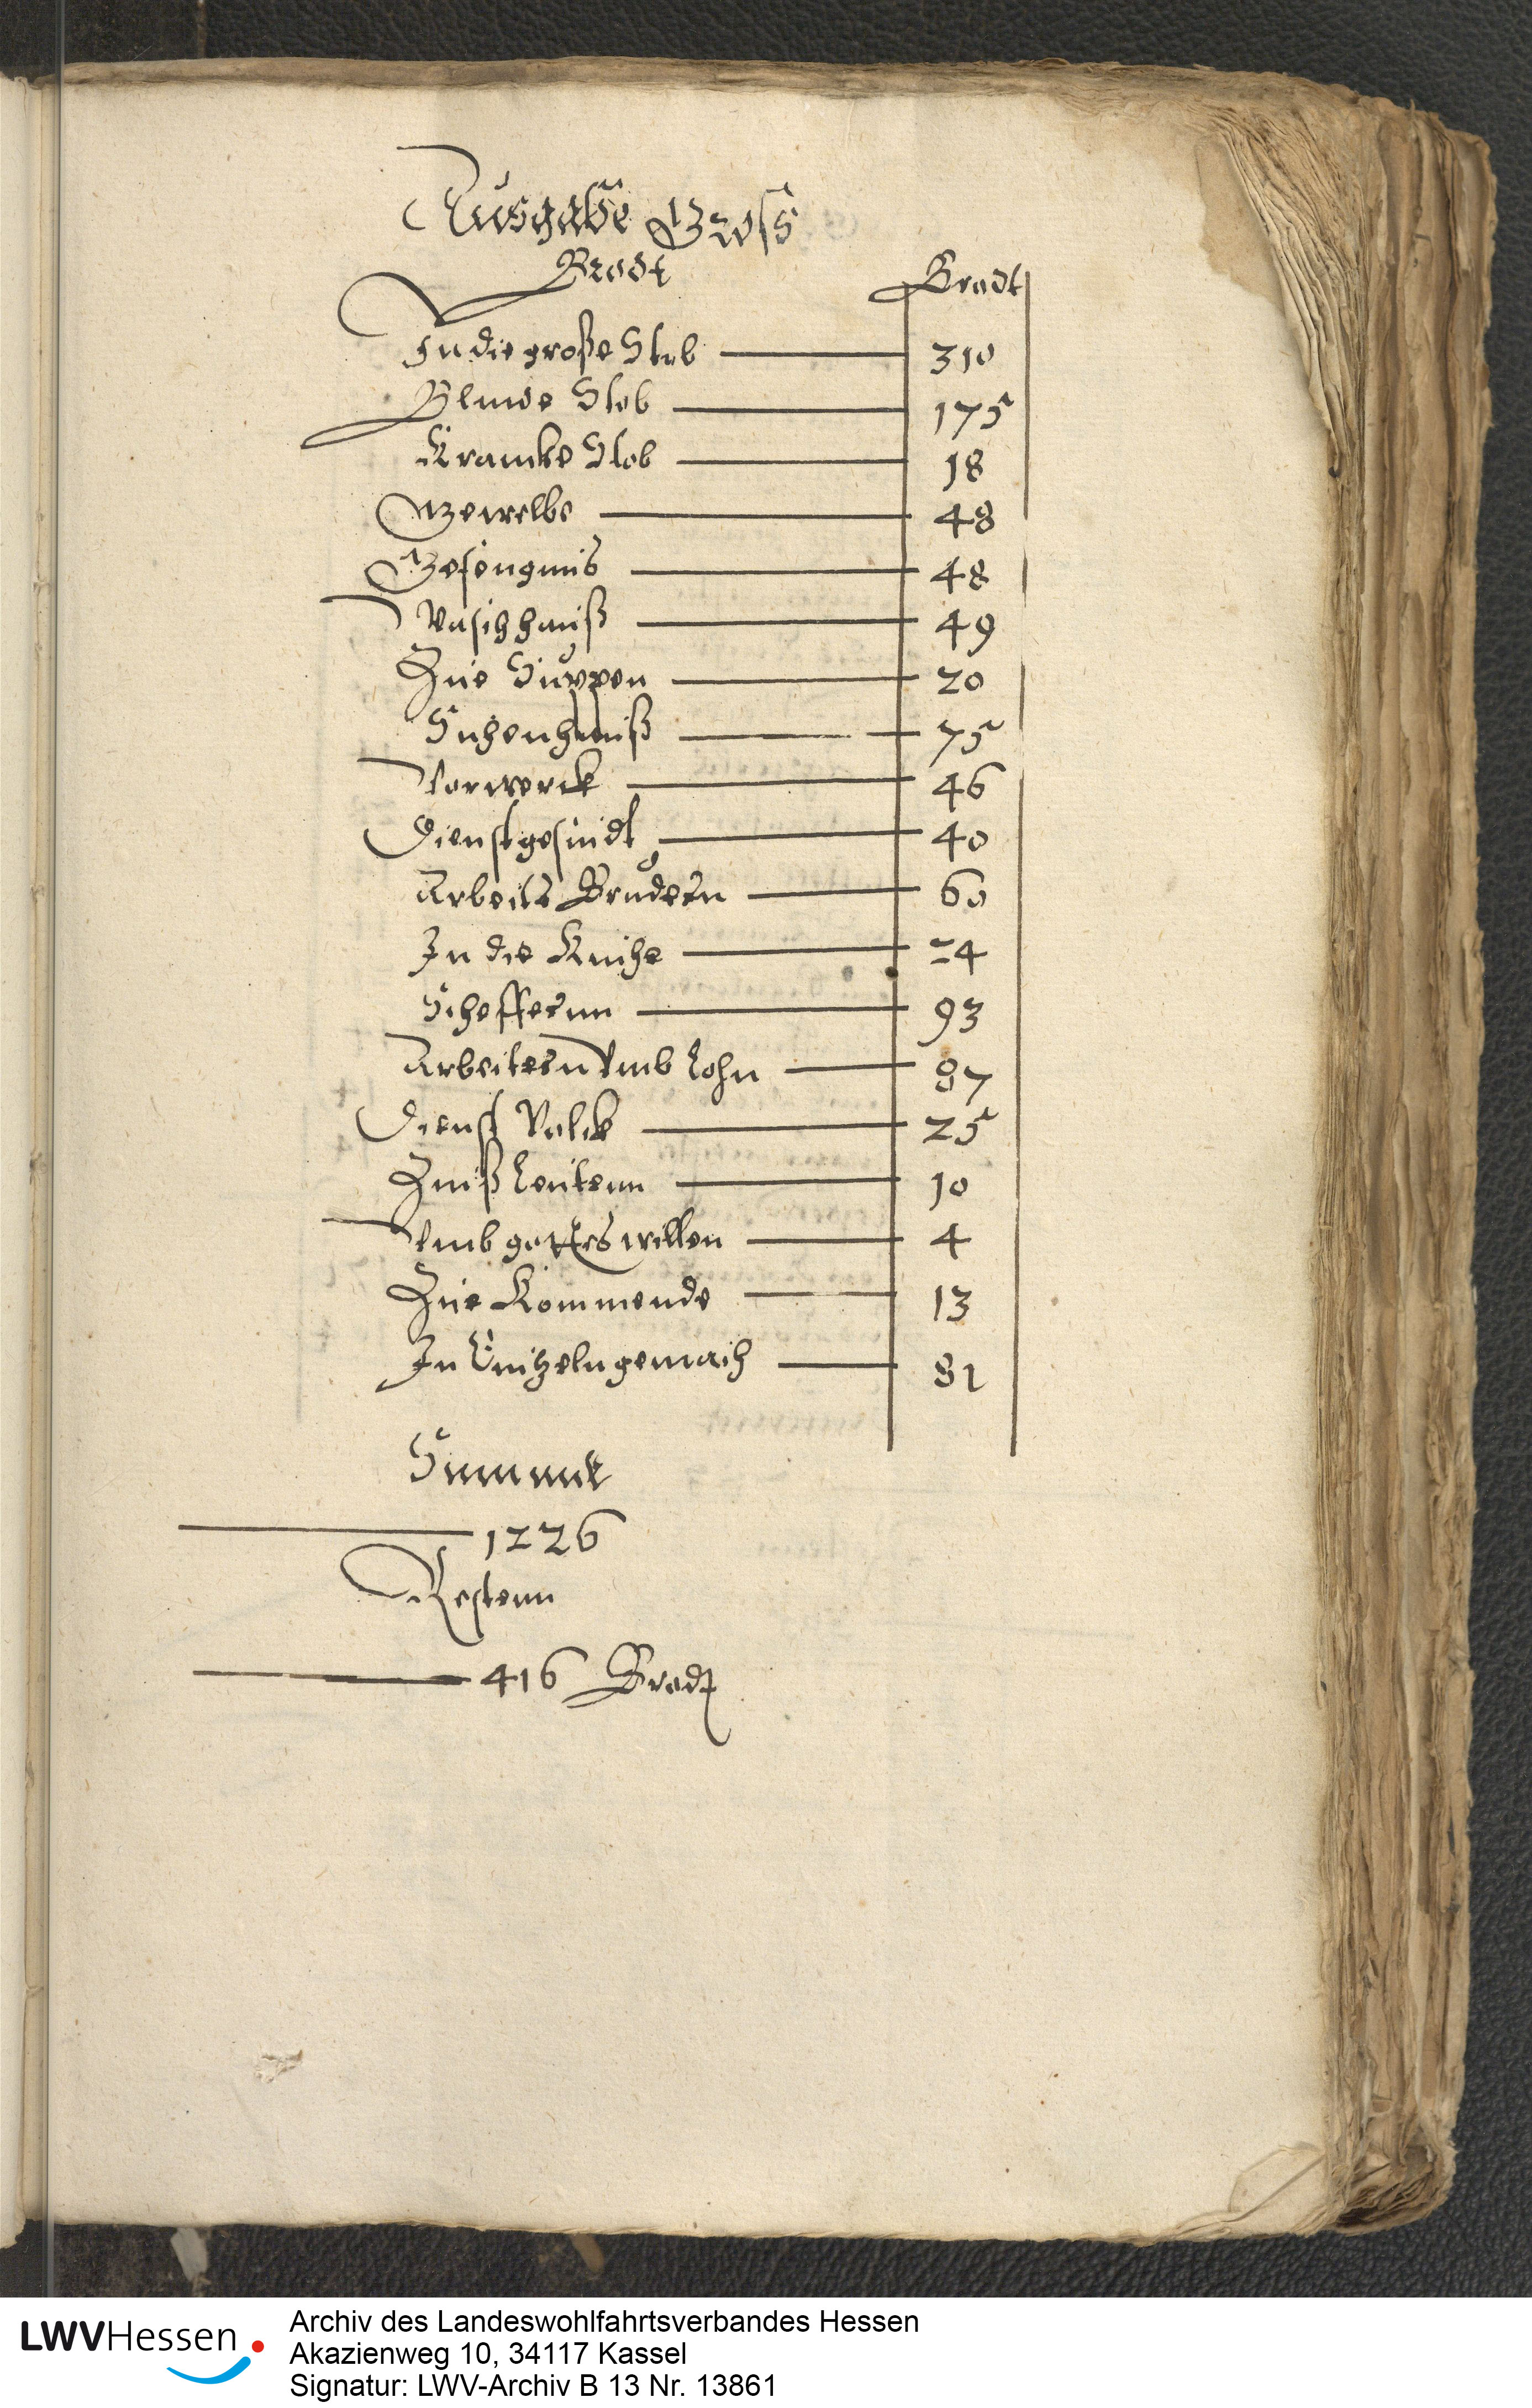 Ausgabe Gross
Brodt
Brodt
In die große Stob 310
Blinde Stob 175
Krancke Stob 18
Gewelbe 48
Gefengnis 48
Waschhauß 49
Zue Suppen 20
Sichenhauß 75
Vorwerck 46
Dienstgesindt 40
Arbeits Brudern 60
In die Kuche 24
Scheffernn 93
Arbeitern Vmb Lohn 87
Dienst Volck 25
Zinß Leutenn 10
Vmb gottes willen 4
Zue Kommende 13
In Eintzeln gemach 81
Summa
1226
Restenn
416 Brodt
LWVHessen
Archiv des Landeswohlfahrtsverbandes Hessen
Akazienweg 10, 34117 Kassel
Signatur: LWV-Archiv B 13 Nr. 13861